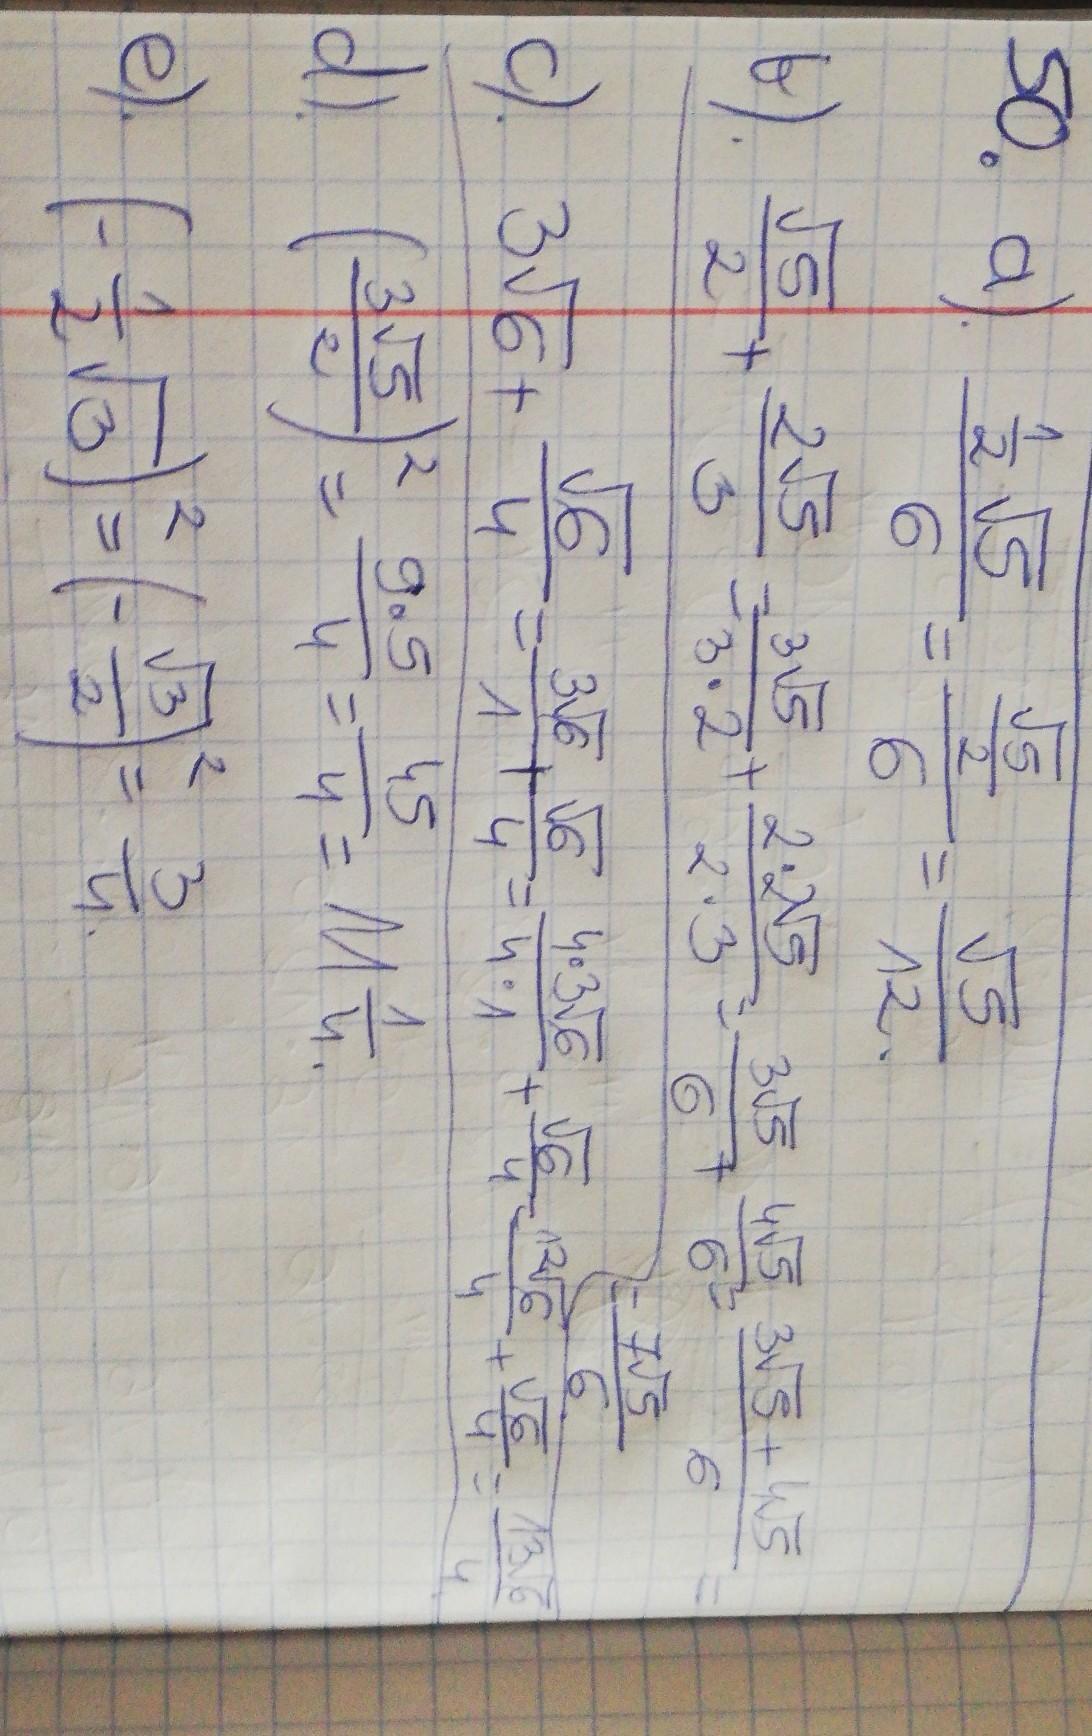 50. a). \frac{\frac{1}{2}\sqrt{5}}{6} = \frac{\frac{\sqrt{5}}{2}}{6} = \frac{\sqrt{5}}{12}.
b). \frac{\sqrt{5}}{2} + \frac{2\sqrt{5}}{3} = \frac{3\sqrt{5}}{3·2} + \frac{2·2\sqrt{5}}{2·3} = \frac{3\sqrt{5}}{6} + \frac{4\sqrt{5}}{6} = \frac{3\sqrt{5}+4\sqrt{5}}{6} =
= \frac{7\sqrt{5}}{6}
c). 3\sqrt{6} + \frac{\sqrt{6}}{4} = \frac{3\sqrt{6}}{1} + \frac{\sqrt{6}}{4} = \frac{4·3\sqrt{6}}{4·1} + \frac{\sqrt{6}}{4} = \frac{12\sqrt{6}}{4} + \frac{\sqrt{6}}{4} = \frac{13\sqrt{6}}{4}.
d). (\frac{3\sqrt{5}}{2})^2 = \frac{9·5}{4} = \frac{45}{4} = 11\frac{1}{4}.
e). (-\frac{1}{2}\sqrt{3})^2 = (-\frac{\sqrt{3}}{2})^2 = \frac{3}{4}.